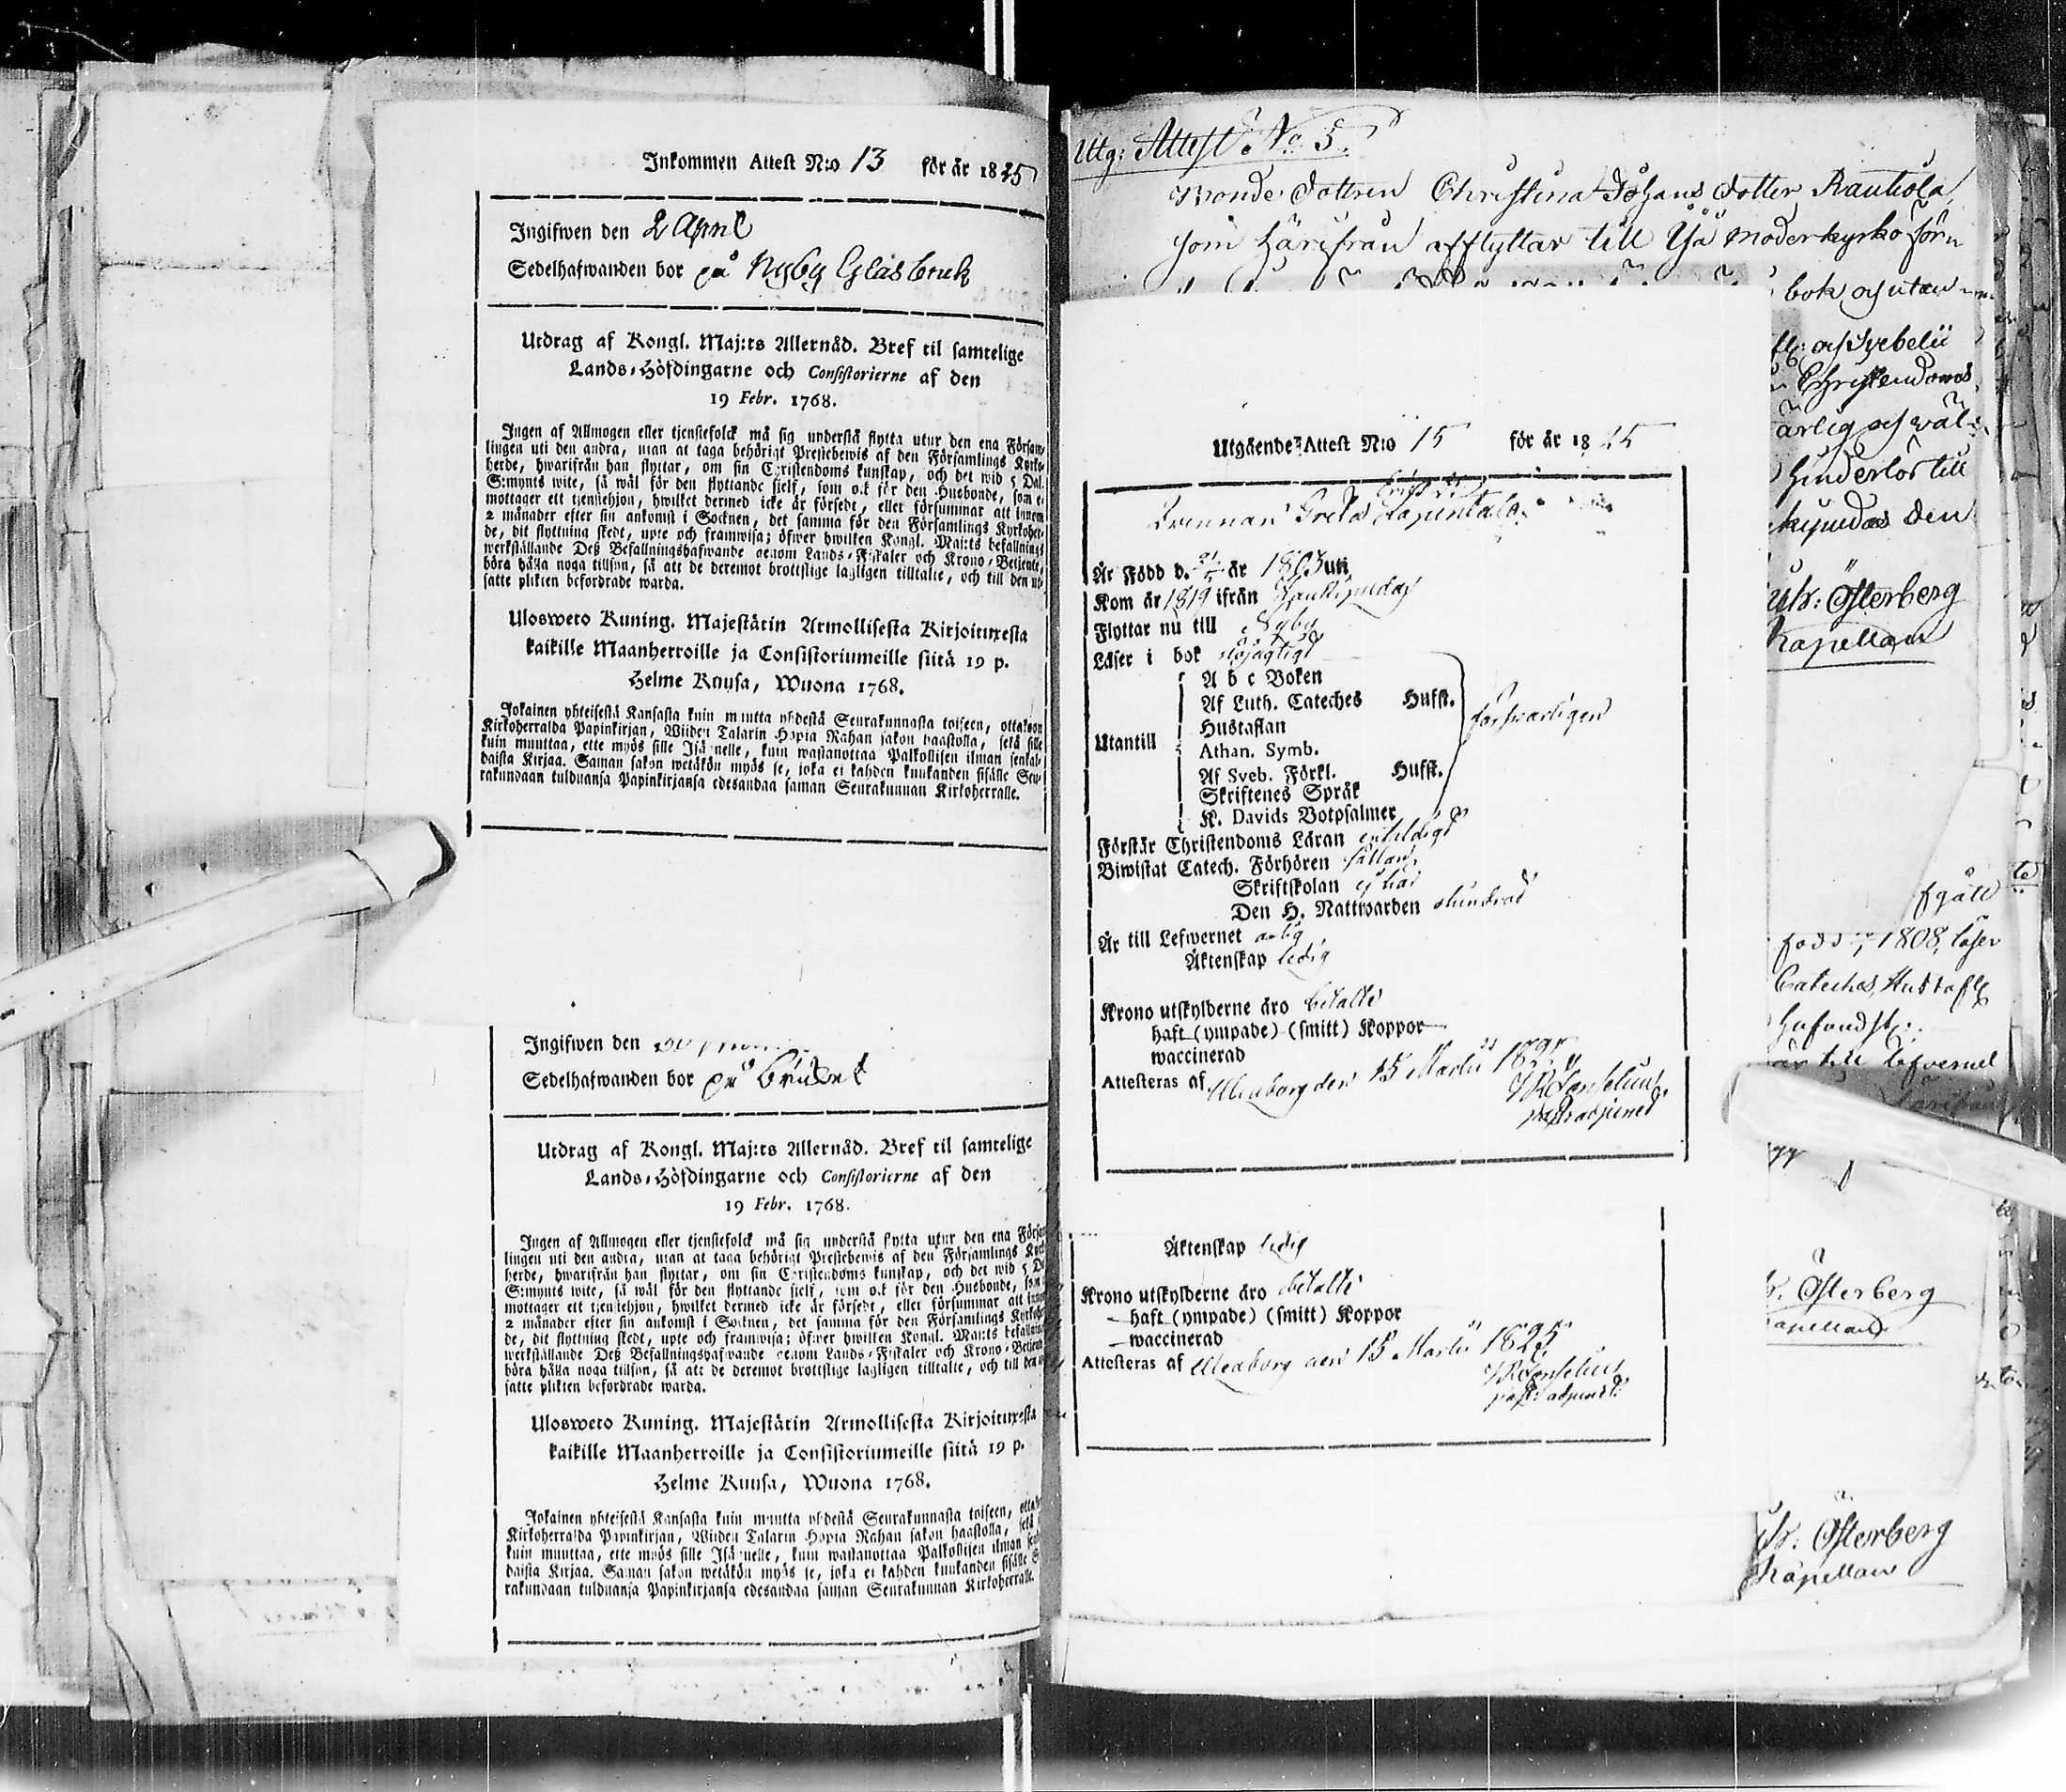 Inkommen Attest N:o 13 för år 1825
Ingifwen den 2 April
Sedelhafwanden bor på Nyby Glasbruk
Utdrag af Kongl. Maj:ts Allernåd. Bref til samtelige
Lands-Höfdingarne och Consistorierne af den
19 Febr. 1768.
Ingen af Allmogen eller tjenstefolck må sig understå flytta utur den ena Försam-
lingen uti den andra, utan at taga behörigt Prestebewis af den Församlings Kyrko-
herde, hwarifrån han flyttar, om sin Christendoms kunskap, och det wid 5 Dal.
S:mynts wite, så wäl för den flyttande sielf, som ock för den Husbonde, som et
mottager ett tjenstehjon, hwilket dermed icke är försedt, eller försummar att innom
2 månader efter sin ankomst i Socknen, det samma för den Församlings Kyrkoher-
de, dit flyttning skedt, upte och framwisa; öfwer hwilken Kongl. Maj:ts befallnings
werkställande Deß Befallningshafwande genom Lands-Fiskaler och Krono-Betjente,
böra hålla noga tillsyn, så att de deremot brottslige lagligen tilltalte, och till den ut-
satte plikten befordrade warda.
Ulosweto Kuning. Majestätin Armollisesta Kirjoituxesta
kaikille Maanherroille ja Consistoriumeille siitä 19 p.
Helme Kuusa, Wuona 1768.
Jokainen yhteisestä Kansasta kuin muutta yhdestä Seurakunnasta toiseen, ottakoon
Kirkoherralda Papinkirjan, Wiiden Talarin Hopia Rahan sakon haastolla, sekä sille
kuin muuttaa, ette myös sille Isännelle, kuin wastanottaa Palkollisen ilman senkal-
daista Kirjaa. Saman sakon wetäkön myös se, joka ei kahden kuukanden sisälle Seu-
rakundaan tulduansa Papinkirjansa edesandaa saman Seurakunnan Kirkoherralle.
Ingifwen den
Sedelhafwanden bor på bruket
Utdrag af Kongl. Maj:ts Allernåd. Bref til samtelige
Lands-Höfdingarne och Consistorierne af den
19 Febr. 1768.
Ingen af Allmogen eller tjenstefolck må sig understå flytta utur den ena Försam
lingen uti den andra, utan at taga behörigt Prestebewis af den Församlings Kyrk
herde, hwarifrån han flyttar, om sin Christendoms kunskap, och det wid 5 D
S:mynts wite, så wäl för den flyttande sielf, som ock för den Husbonde, som
mottager ett tjenstehjon, hwilket dermed icke är försedt, eller försummar att innom
2 månader efter sin ankomst i Socknen, det samma för den Församlings Kyrkohe
de, dit flyttning skedt, upte och framwisa; öfwer hwilken Kongl. Maj:ts befallning
werkställande Deß Befallningshafwande genom Lands-Fiskaler och Krono-Betjent
böra hålla noga tillsyn, så att de deremot brottslige lagligen tilltalte, och till den
satte plikten befordrade warda.
Ulosweto Kuning. Majestätin Armollisesta Kirjoituxesta
kaikille Maanherroille ja Consistoriumeille siitä 19 p.
Helme Kuusa, Wuona 1768.
Jokainen yhteisestä Kansasta kuin muutta yhdestä Seurakunnasta toiseen, otta
Kirkoherralda Papinkirjan, Wiiden Talarin Hopia Rahan sakon haastolla, sekä
kuin muuttaa, ette myös sille Isännelle, kuin wastanottaa Palkollisen ilman sen
daista Kirjaa. Saman sakon wetäkön myös se, joka ei kahden kuukanden sisälle S
rakundaan tulduansa Papinkirjansa edesandaa saman Seurakunnan Kirkoherralle.
Utg: Attest No 5.
Bonde dottren Christina Johans dotter Rautiola,
som härifrån afflyttar till Ijå moderkyrko förs
bok och utan
och Svebelii
Christendoms
ärlig och väl
hinderlös till
den
Österberg
Kapellan
Utgående Attest N:o 15 för år 1825
Grels
Är Född d. år 1803 uti
Kom år 1819 ifrån Haukipudas
Flyttar nu till Nyby
Läser i bok nöjagtigt
A b c Boken
Af Luth. Cateches Husst.
Hustaflan
Utantill Athan. Symb. försvarligen
Af Sveb. Förkl. Husst.
Skriftenes Språk
K. Davids Botpsalmer
Förstår Christendoms Läran enfaldigt
Biwistat Catech. Förhören sällan
Skriftskolan ej här
Den H. Nattwarden stundom
Är till Lefwernet ärlig
Äktenskap ledig
Krono utskylderne äro betalte
haft (ympade) (smitt) Koppor
waccinerad
Attesteras af Uleaborg den 15 Martii 1825
past. adjunct
född 1808, läser
Cateches, Hustafl
är till lefvernet
Äktenskap ledig
Krono utskylderne äro betalte
haft (ympade) (smitt) Koppor
waccinerad
Attesteras af Uleaborg den 15 Martii 1825.
past: adjunct:
Österberg
Kapellan
Österberg
Kapellan